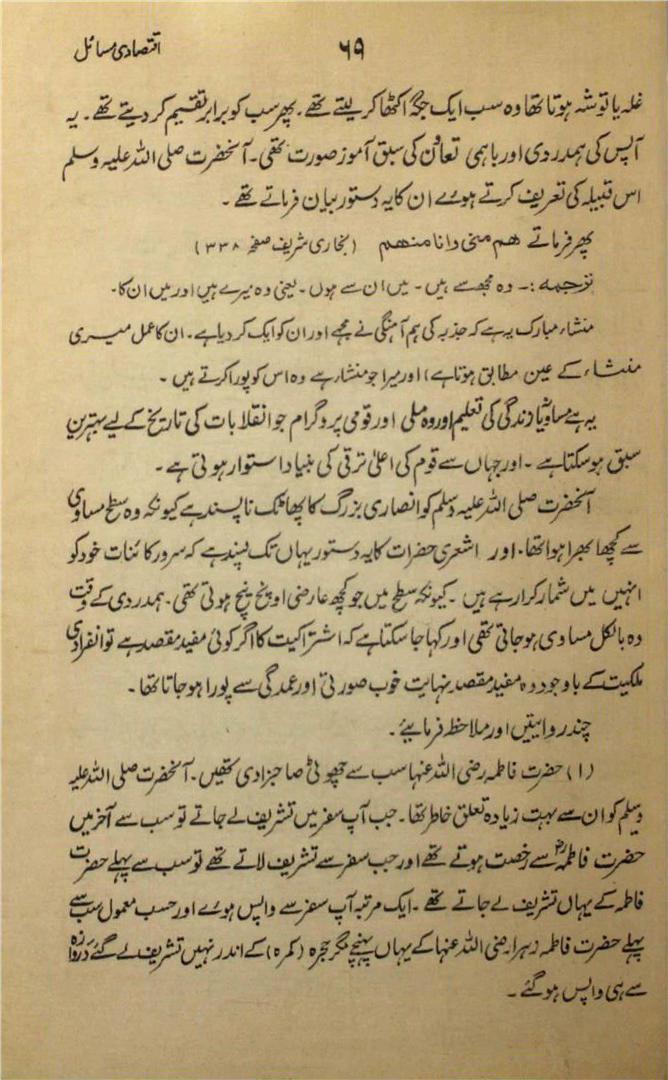 اقتصادی مسائل
۶۹
غلہ یا توشہ ہوتا تھا وہ سب ایک جگہ اکٹھا کر لیتے تھے۔ پھر سب کو برابر تقسیم کر دیتے تھے۔ یہ
آپس کی ہمدردی اور باہمی تعاون کی سبق آموز صورت تھی۔ آنحضرت صلی اللہ علیہ وسلم
اس قبیلہ کی تعریف کرتے ہوئے ان کا یہ دستور بیان فرماتے تھے۔
پھر فرماتے ھم منی وانا منھم (بخاری شریف صفحہ ۳۳۸)
ترجمہ :۔ وہ مجھ سے ہیں۔ میں ان سے ہوں۔ یعنی وہ میرے ہیں اور میں ان کا۔
منشاء مبارک یہ ہے کہ جذبہ کی ہم آہنگی نے مجھے اور ان کو ایک کر دیا ہے۔ ان کا عمل میری
منشاء کے عین مطابق ہوتا ہے) اور میرا جو منشار ہے وہ اس کو پورا کرتے ہیں ۔
یہ ہے مساویانہ زندگی کی تعلیم اور وہ ملی اور قومی پروگرام جو انقلابات کی تاریخ کے لیے بہترین
سبق ہو سکتا ہے ۔ اور جہاں سے قوم کی اعلیٰ ترقی کی بنیاد استوار ہوتی ہے ۔
آنحضرت صلی اللہ علیہ وسلم کو انصاری بزرگ کا پھاٹک ناپسند ہے کیونکہ وہ سطح مساوی
سے کچھ ابھرا ہوا تھا۔ اور اشعری حضرات کا یہ دستور یہاں تک پسند ہے کہ سرور کائنات خود کو
انہیں میں شمار کرا رہے ہیں ۔ کیونکہ سطح میں جو کچھ عارضی اونچ نیچ ہوتی تھی۔ ہمدردی کے وقت
وہ بالکل مساوی ہو جاتی تھی اور کہا جا سکتا ہے کہ اشتراکیت کا اگر کوئی مفید مقصد ہے تو انفرادی
ملکیت کے باوجود وہ مفید مقصد نہایت خوب صورتی اور عمدگی سے پورا ہو جاتا تھا ۔
چند روایتیں اور ملاحظہ فرمایئے۔
(۱) حضرت فاطمہ رضی اللہ عنہا سب سے چھوٹی صاحبزادی تھیں۔ آنحضرت صلی اللہ علیہ
وسلم کو ان سے بہت زیادہ تعلق خاطر تھا۔ جب آپ سفر میں تشریف لے جاتے تو سب سے آخر میں
حضرت فاطمہؓ سے رخصت ہوتے تھے اور جب سفر سے تشریف لاتے تھے تو سب سے پہلے حضرت
فاطمہ کے یہاں تشریف لے جاتے تھے ۔ ایک مرتبہ آپ سفر سے واپس ہوئے اور حسب معمول سب سے
پہلے حضرت فاطمہ زہرا رضی اللہ عنہا کے یہاں پہنچے مگر حجرہ (کمرہ) کے اندر نہیں تشریف لے گئے دروازہ
سے ہی واپس ہو گئے ۔